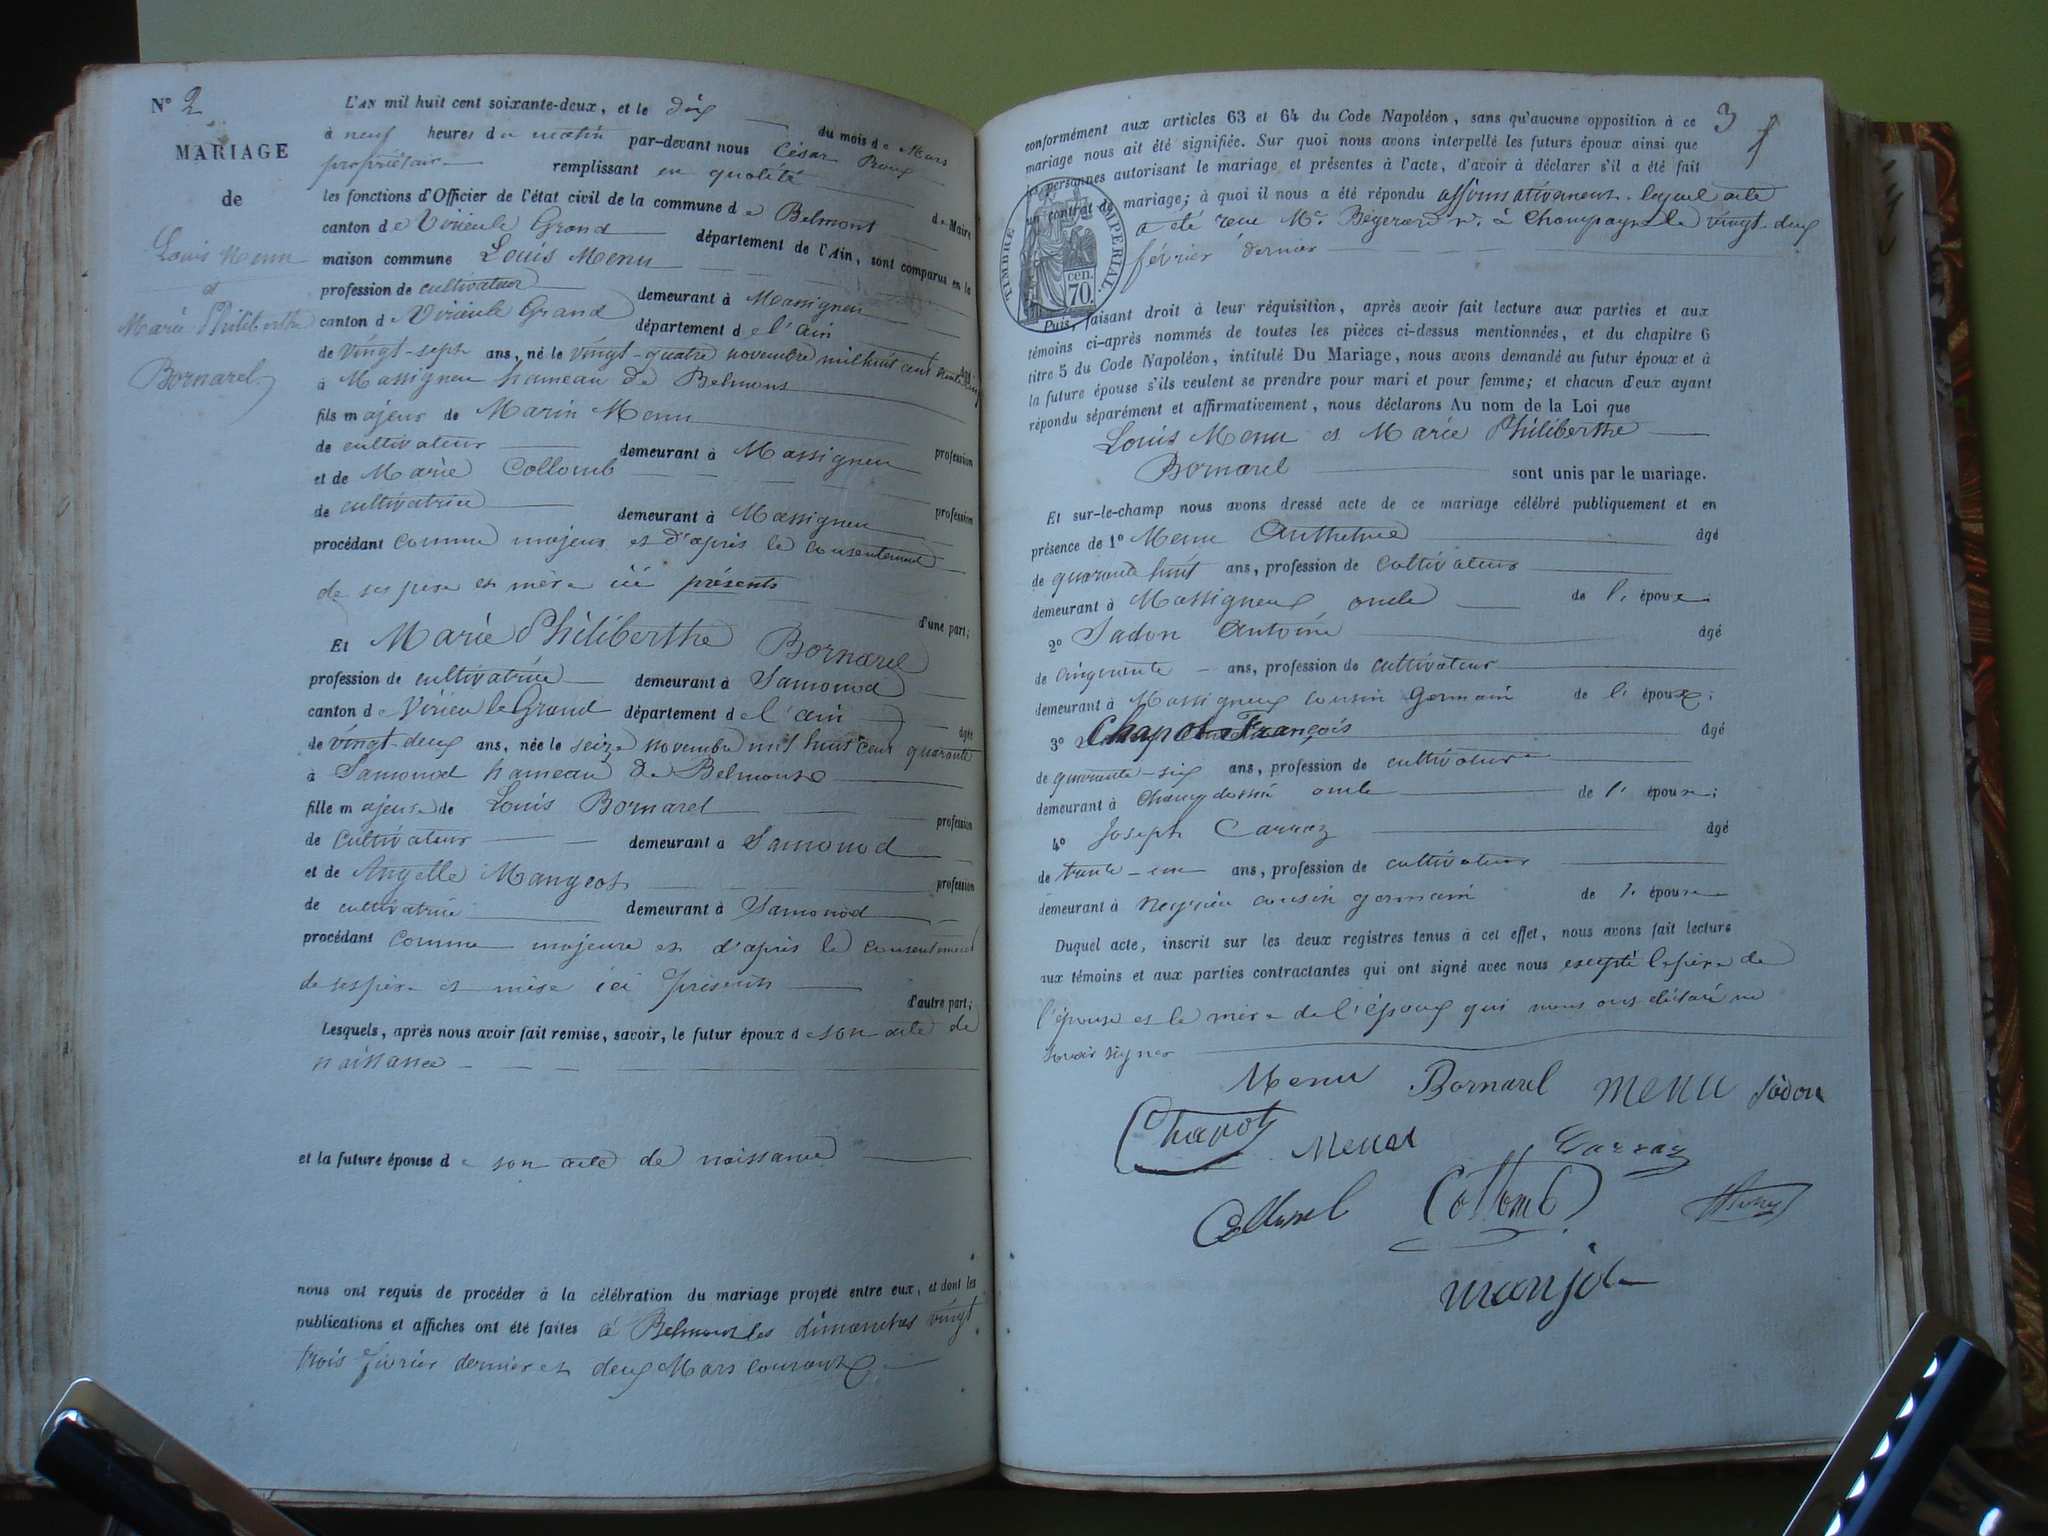 N° 2
MARIAGE
de
Louis Menu
et
Marie Philiberthe
Bornarel
L'AN mil huit cent soixante-deux, et le dix du mois de Mars
à neuf heures du matin par-devant nous César
propriétaire remplissant en qualité de Maire
les fonctions d'Officier de l'état civil de la commune de Belmont
canton de Virieu le Grand département de l'Ain, sont comparus en la
maison commune Louis Menu
profession de cultivateur demeurant à Massigneu
canton de Virieu le Grand département de l'ain âgé
de vingt-sept ans, né le vingt-quatre novembre mil huit cent trente
à Massigneu hameau de Belmont
fils majeur de Marin Menu profession
de cultivateur demeurant à Massigneu
et de Marie Collomb profession
de cultivatrice demeurant à Massigneu
procédant comme majeur et d'après le consentement
de ses père et mère ici présents
d'une part;
Et Marie Philiberthe Bornarel
profession de cultivatrice demeurant à Samonod
canton de Virieu le Grand département de l'ain âgée
de vingt-deux ans, née le seize novembre mil huit cent quarante
à Samonod hameau de Belmont
fille majeure de Louis Bornarel profession
de cultivateur demeurant à Samonod
et de Angelle Mangeot profession
de cultivatrice demeurant à Samonod
procédant comme majeure et d'après le consentement
de ses père et mère ici présents
d'autre part;
Lesquels, après nous avoir fait remise, savoir, le futur époux de son acte de
naissance
et la future épouse de son acte de naissance
nous ont requis de procéder à la célébration du mariage projeté entre eux, et dont les
publications et affiches ont été faites à Belmont les dimanches vingt
trois février dernier et deux Mars courant
3
conformément aux articles 63 et 64 du Code Napoléon, sans qu'aucune opposition à ce
mariage nous ait été signifiée. Sur quoi nous avons interpellé les futurs époux ainsi que
les personnes autorisant le mariage et présentes à l'acte, d'avoir à déclarer s'il a été fait
un contrat de mariage; à quoi il nous a été répondu affirmativement. lequel acte
a été reçu Me. à Champagne le vingt-deux
février dernier
TIMBRE IMPERIAL
70 cen.
Puis, faisant droit à leur réquisition, après avoir fait lecture aux parties et aux
témoins ci-après nommés de toutes les pièces ci-dessus mentionnées, et du chapitre 6
titre 5 du Code Napoléon, intitulé Du Mariage, nous avons demandé au futur époux et à
la future épouse s'ils veulent se prendre pour mari et pour femme; et chacun d'eux ayant
répondu séparément et affirmativement, nous déclarons Au nom de la Loi que
Louis Menu et Marie Philiberthe
Bornarel sont unis par le mariage.
Et sur-le-champ nous avons dressé acte de ce mariage célébré publiquement et en
présence de 1° Menu Anthelme âgé
de quarante huit ans, profession de cultivateur
demeurant à Massigneux oncle de l'épouse
2° Jadon Antoine âgé
de cinquante ans, profession de cultivateur
demeurant à Massigneux cousin germain de l'époux;
3° Chapot François âgé
de quarante-six ans, profession de cultivateur
demeurant à oncle de l'épouse;
4° Joseph Carraz âgé
de trente-un ans, profession de cultivateur
demeurant à cousin germain de l'épouse
Duquel acte, inscrit sur les deux registres tenus à cet effet, nous avons fait lecture
aux témoins et aux parties contractantes qui ont signé avec nous excepté le père de
l'épouse et la mère de l'époux qui nous ont déclaré ne
savoir signer
Menu Bornarel menu Jadon
Chapot Menu Carraz
Collomb
manjot